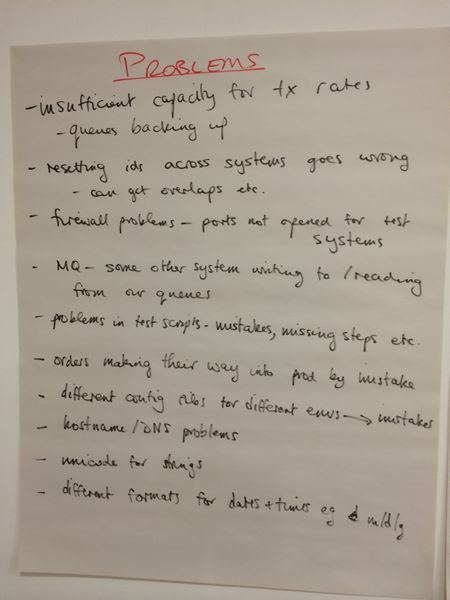 PROBLEMS
- insufficient capacity for tx rates
- queues backing up
- resetting ids across systems goes wrong
- can get overlaps etc.
- firewall problems - ports not opened for test
systems
- MQ - some other system writing to / reading
from our queues
- problems in test scripts - mistakes, missing steps etc.
- orders making their way into prod by mistake
- different config files for different envs → mistakes
- hostname/DNS problems
- unicode for strings
- different formats for dates + times eg m/d/y